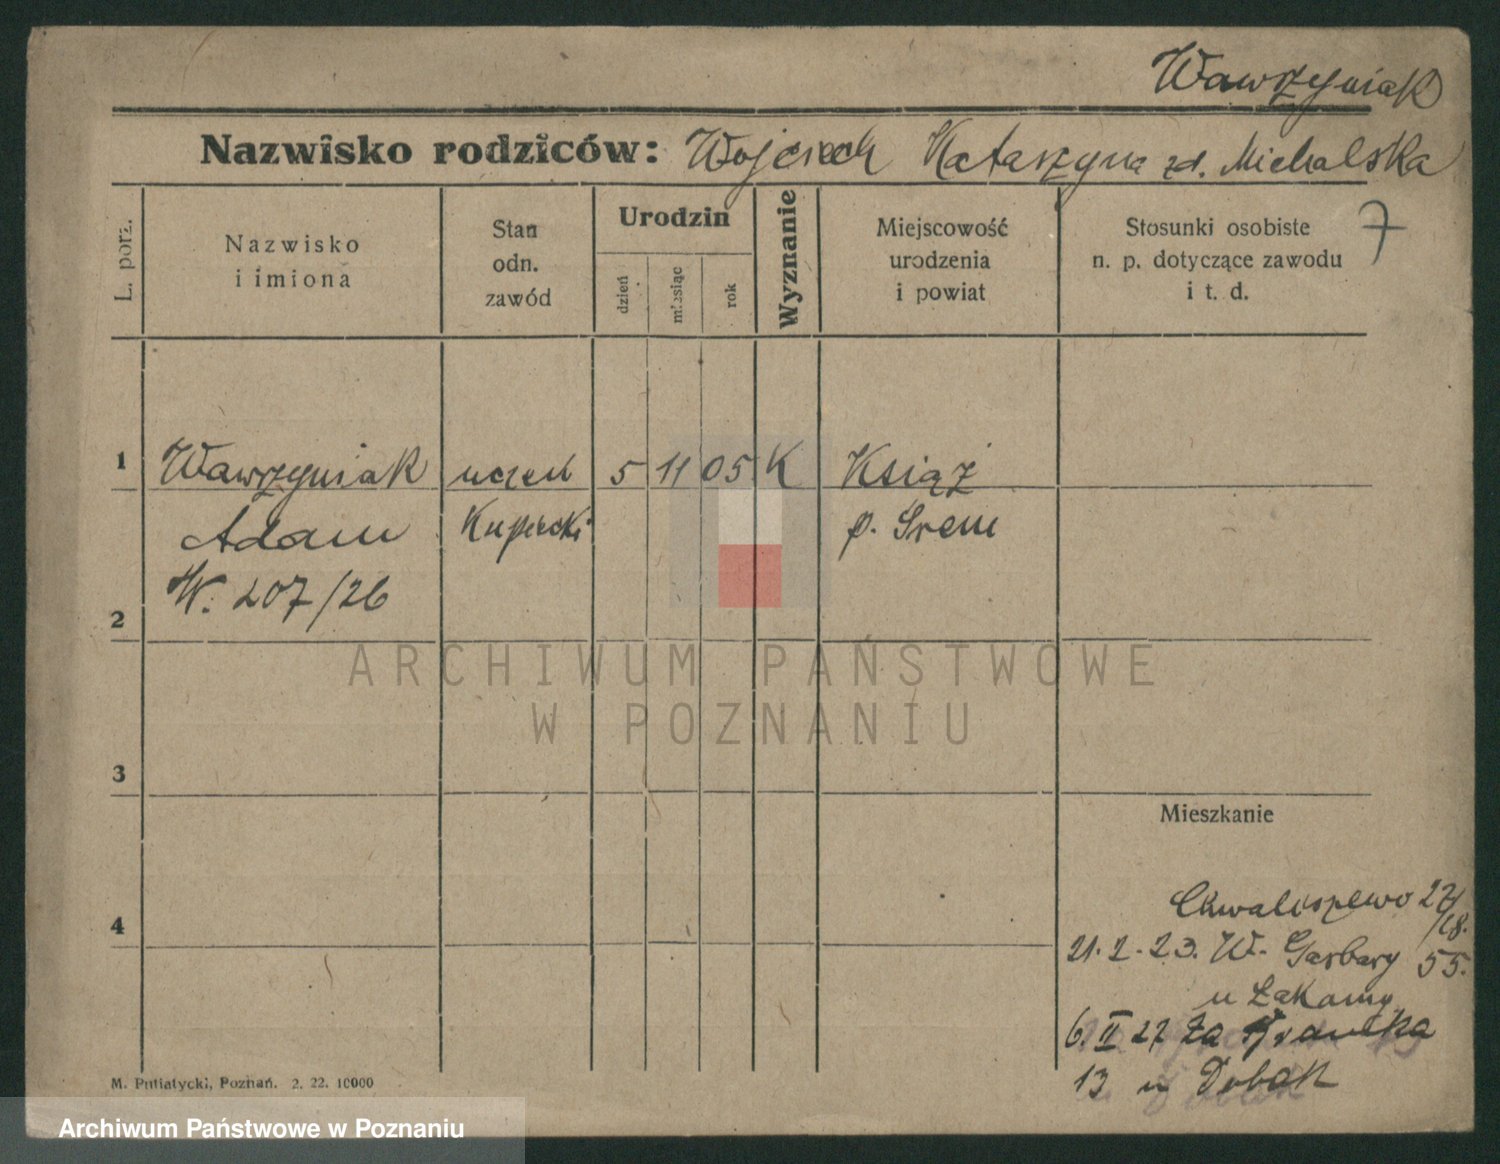 Wawrzyniak
Nazwisko rodziców: Wojciech Katarzyna zd. Michalska
7
L. porz.
Nazwisko
i imiona
Stan
odn.
zawód
Urodzin
dzień
miesiąc
rok
Wyznanie
Miejscowość
urodzenia
i powiat
Stosunki osobiste
n. p. dotyczące zawodu
i t. d.
1 Wawrzyniak uczeń 5 11 05 K Książ
Adam Kupiecki p. Śrem
2 W. 207/26
ARCHIWUM PAŃSTWOWE
W POZNANIU
3
Mieszkanie
4
Chwaliszewo 27/18.
21. 2. 23. W. Garbary 55.
u Łakomy
6. II 27 Za
13 u Dobak
M. Putiatycki, Poznań. 2. 22. 10000
Archiwum Państwowe w Poznaniu